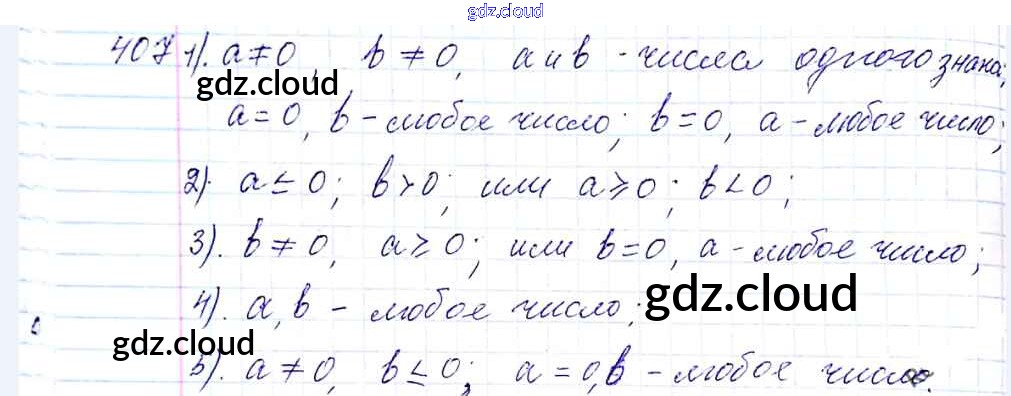 gdz.cloud
407 1). a ≠ 0, b ≠ 0, a и b - числа одного знака;
gdz.cloud
a = 0, b - любое число; b = 0, a - любое число;
2). a ≤ 0; b > 0; или a ≥ 0; b < 0;
3). b ≠ 0, a ≥ 0; или b = 0, a - любое число;
4). a, b - любое число;
gdz.cloud
gdz.cloud
5). a ≠ 0, b ≤ 0; a = 0, b - любое число.